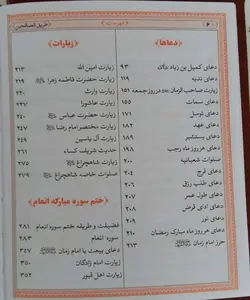 ۶
﴿فهرست﴾
طریق الصالحین
﴿دعاها﴾
دعای کمیل بن زیاد ۹۳
دعای ندبه ۱۱۹
زیارت صاحب الزمان در روز جمعه ۱۵۱
دعای سمات ۱۵۵
دعای توسل ۱۷۱
دعای عهد ۱۸۲
دعای یستشیر ۱۸۷
دعای هر روز ماه رجب
صلوات شعبانیه ۲۰۰
دعای فرج ۲۰۴
دعای طلب رزق ۲۰۶
دعای طول عمر ۲۰۷
دعای ادای قرض ۲۰۸
دعای نور ۲۰۹
دعای هر روز ماه مبارک رمضان ۲۱۰
حرز امام زمان ۲۱۳
﴿زیارات﴾
زیارت امین الله ۲۱۳
زیارت حضرت فاطمه زهرا ۲۱۹
زیارت وارث ۲۲۰
زیارت عاشورا ۲۲۷
زیارت حضرت عباس ۲۴۰
زیارت مختصر امام رضا ۲۴۷
زیارت آل یاسین ۲۴۹
حدیث شریف کساء ۲۶۱
زیارت شاهچراغ ۲۷۵
صلوات خاصه شاهچراغ ۲۷۹
﴿ختم سوره مبارکه انعام﴾
فضیلت و طریقه ختم سوره انعام ۲۸۱
سوره انعام ۲۸۳
دعای بیعت با امام زمان ۳۴۷
زیارت امام زادگان ۳۵۰
زیارت اهل قبور ۳۵۲